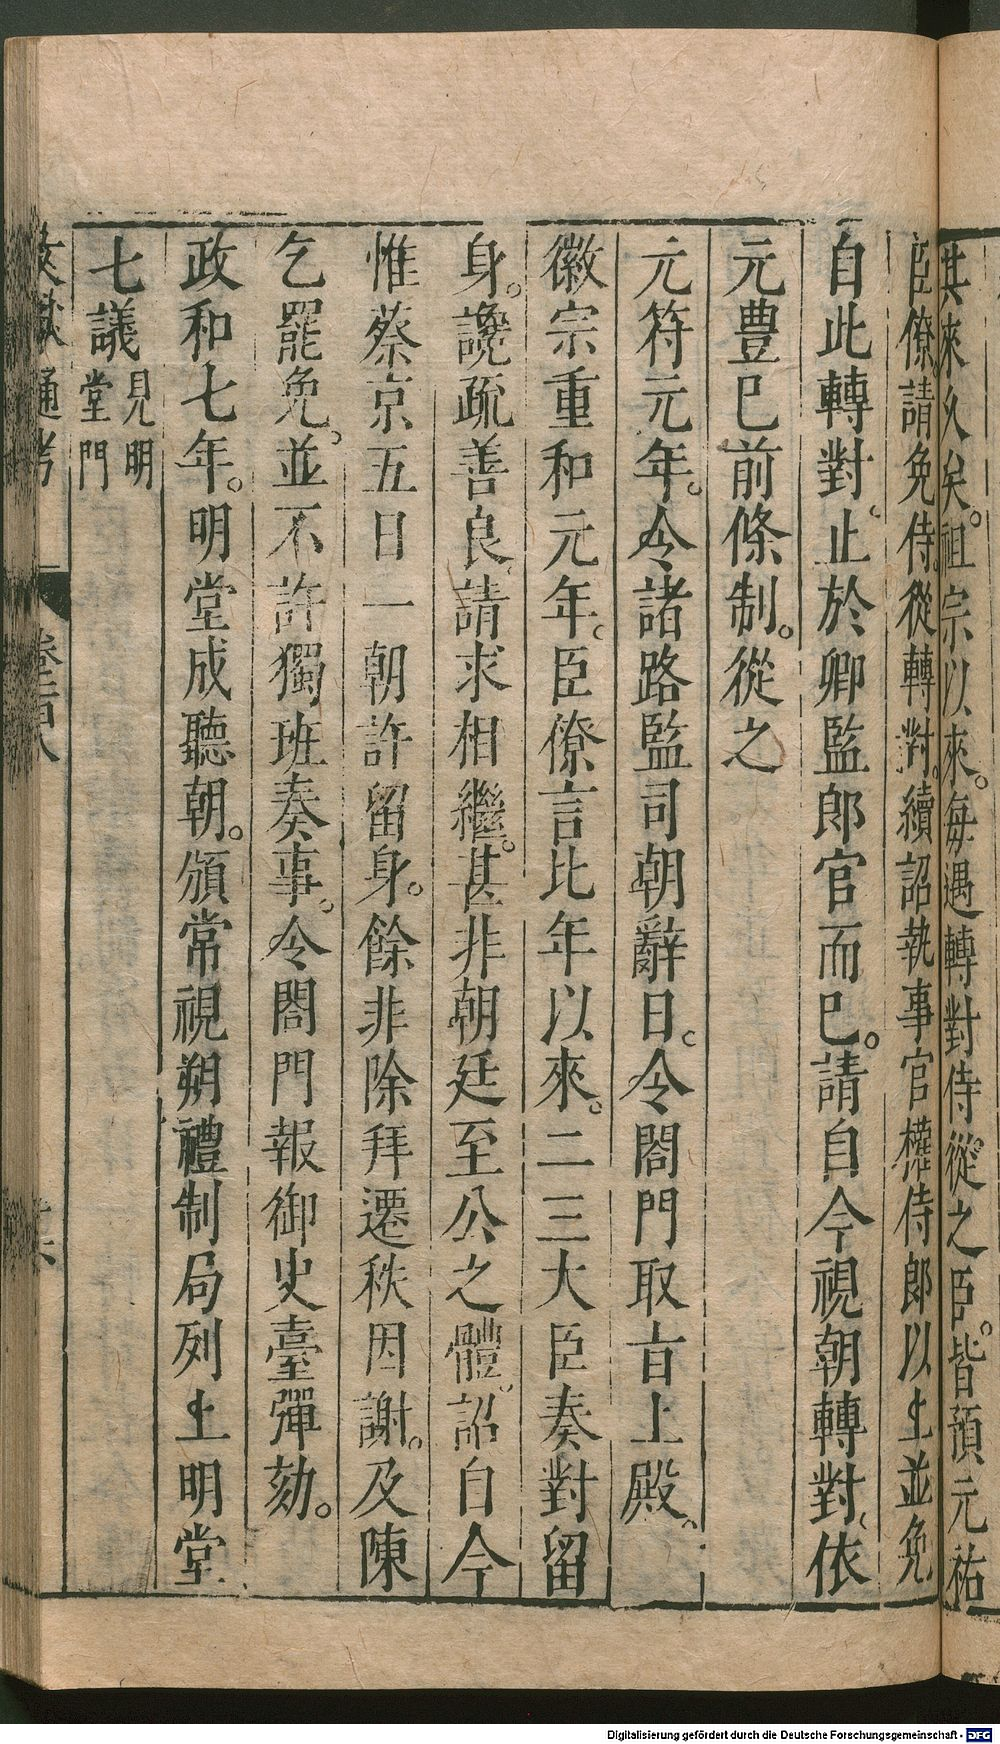 其來久矣。祖宗以來。每遇轉對侍從之臣。皆預元祐
臣僚請免侍從轉對。續詔執事官權侍郎以上並免
自此轉對、止於卿監郎官而已。請自今視朝轉對、依
元豐已前條制。從之
元符元年。令諸路監司朝辭日。令閤門取旨上殿。
徽宗重和元年。臣僚言比年以來。二三大臣奏對留
身。讒疏善良、請求相繼。甚非朝廷至公之體。詔自今
惟蔡京五日一朝許留身。餘非除拜遷秩因謝。及陳
乞罷免。並不許獨班奏事。令閤門報御史臺彈劾。
政和七年。明堂成聽朝。頒常視朔禮制局列上明堂
七議見明堂門
文獻通考 卷一百八
Digitalisierung gefördert durch die Deutsche Forschungsgemeinschaft - DFG